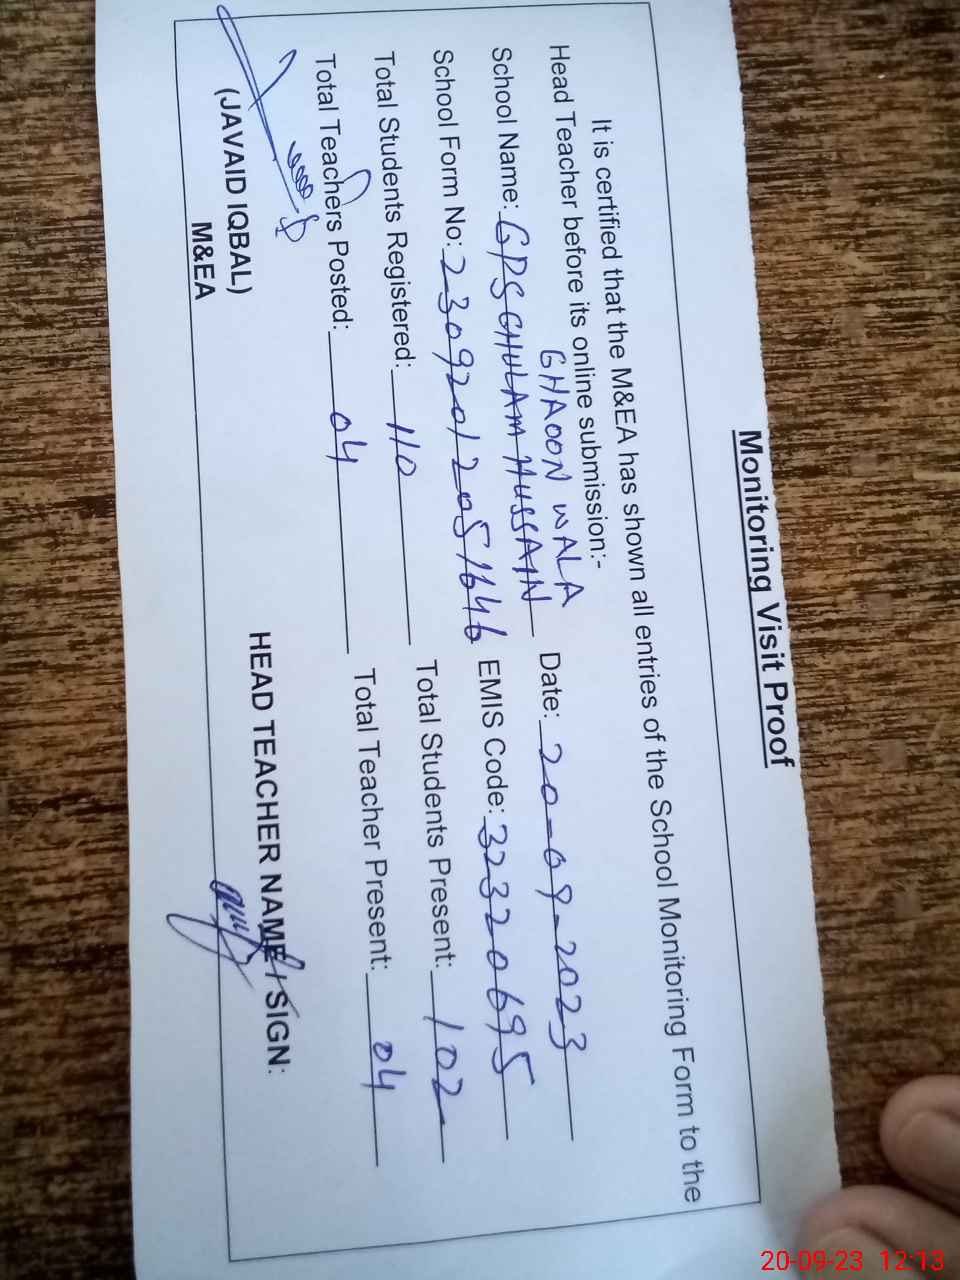 Monitoring Visit Proof
It is certified that the M&EA has shown all entries of the School Monitoring Form to the
Head Teacher before its online submission:-
GHAOON WALA
School Name: GPS GHULAM HUSSAIN Date: 20-09-2023
School Form No: 23092012051646 EMIS Code: 32320695
Total Students Registered: 110 Total Students Present: 102
Total Teachers Posted: 04 Total Teacher Present: 04
(JAVAID IQBAL)
M&EA
HEAD TEACHER NAME / SIGN:
20-09-23 12:13